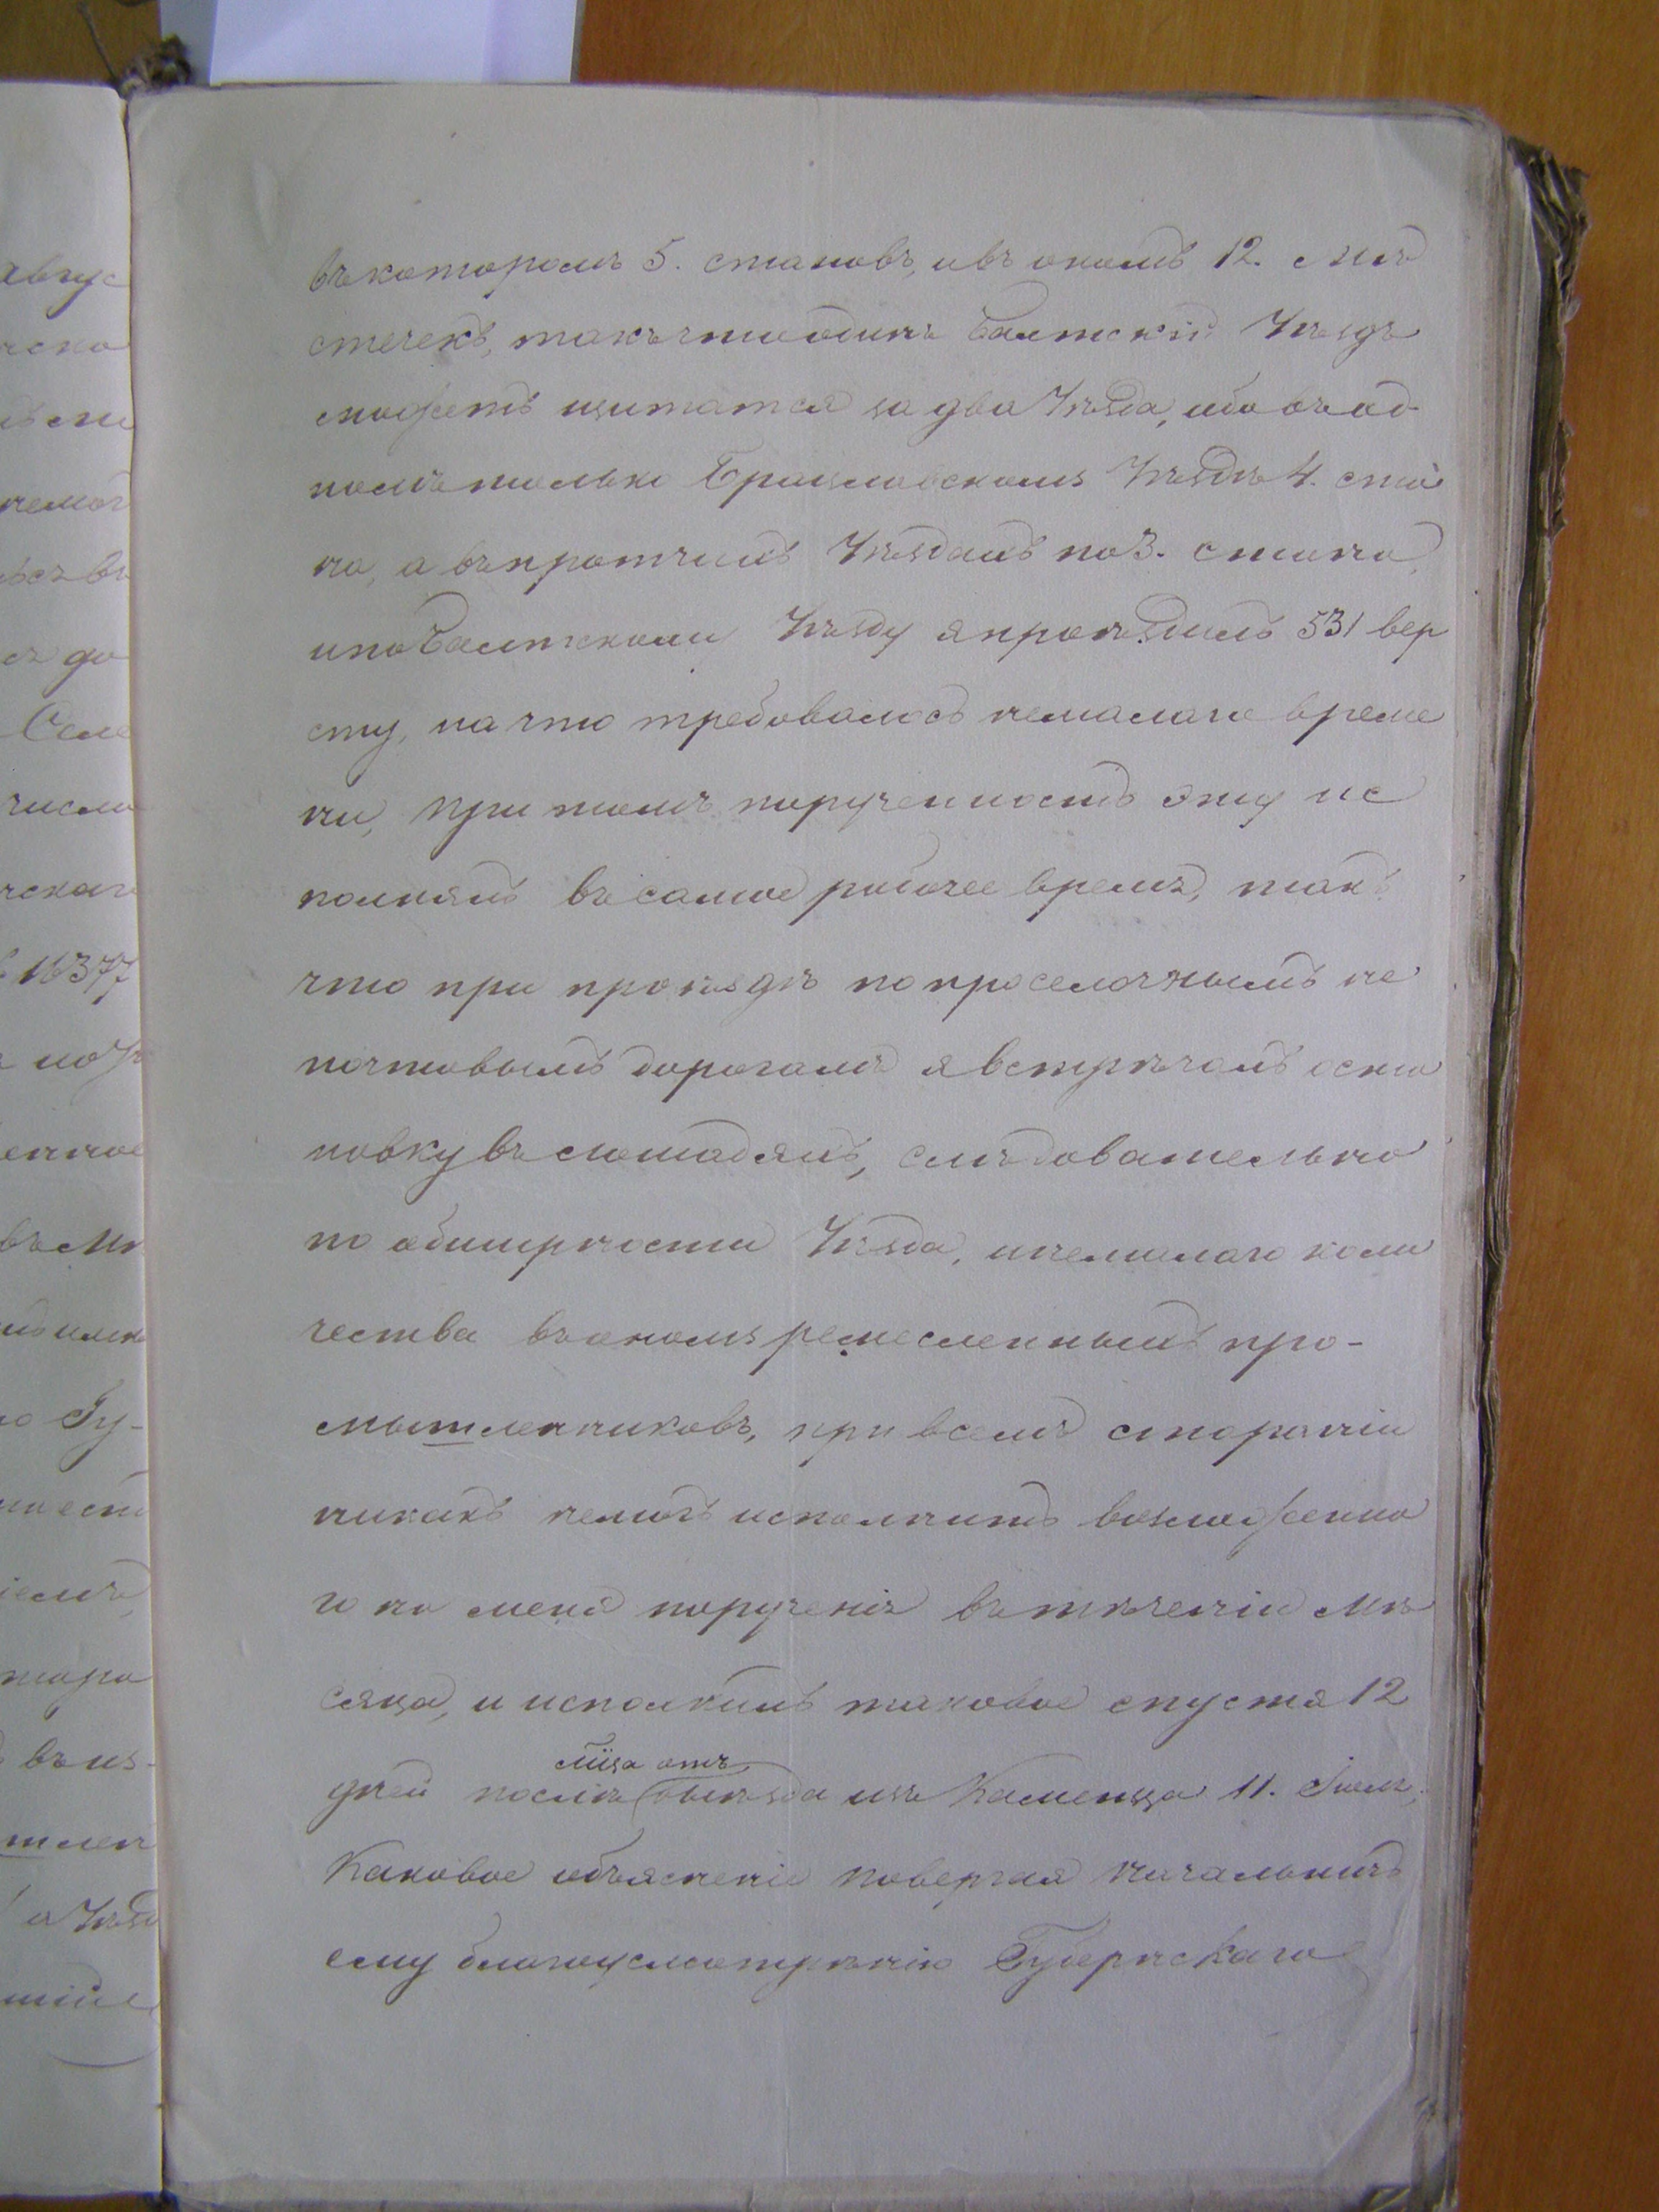 въ которомъ 5. становъ, и въ ономъ 12. мѣ
стечекъ, такъ что одинъ Балтскій Уѣздъ
можетъ щитатся за два Уѣзда, ибо въ од-
номъ только Брацлавскомъ Уѣздѣ 4. ста
на, а въ протчихъ Уѣздахъ по 3. стана,
и по Балтскому Уѣзду я проѣздилъ 531 вер
сту, на что требовалось немалаго време
ни, при томъ порученность эту ис
полнялъ въ самое рабочее время, такъ
что при проѣздѣ по проселочнымъ не
почтовымъ дорогамъ я встрѣчалъ оста
новку въ лошадяхъ, слѣдовательно
по обширности Уѣзда, и немалаго коли
чества въ ономъ ремесленныхъ про-
мышленниковъ, при всемъ стараніи
никакъ немогъ исполнить возложенна
го на меня порученія въ тѣченіи мѣ
сяца, и исполнилъ таковое спустя 12
мѣца отъ
дней послѣ выѣзда изъ Каменца 11. Іюля,
Каковое объясненіе повергая начальнич
ему благоусмотрѣнію Губернскаго
авгус
чско
немог
до
Селе
число
чскаго
16377
енное
въ Мѣ
Гу-
въ из-
шлен